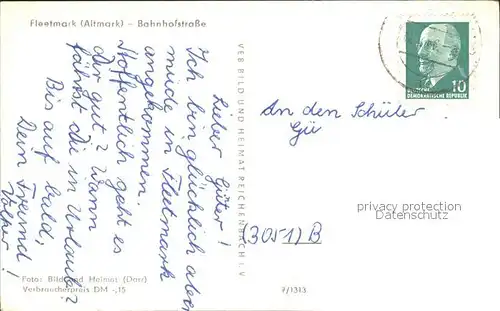 Fleetmark (Altmark) – Bahnhofstraße
Lieber Güter!
Ich bin glücklich aber
müde in Fleetmark
angekommen.
Hoffentlich geht es
dir gut? Wann
fährst du in Urlaub?
Bis auf bald,
Dein Freund
Volker!
VEB BILD UND HEIMAT REICHENBACH I. V.
Foto: Bild und Heimat (Darr)
Verbraucherpreis DM -,15
7/1313
DEUTSCHE
DEMOKRATISCHE REPUBLIK
10
An den Schüler
Gü
(3051) B
privacy protection
Datenschutz